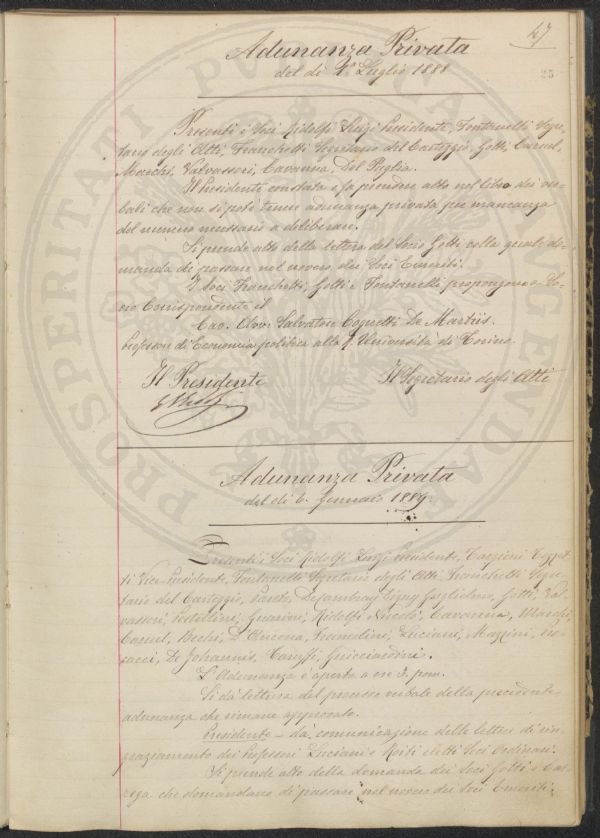 47
25
Adunanza Privata
del dì 1º Luglio 1888
Presenti i Soci Ridolfi Luigi Presidente, Fontanelli Segre-
tario degli Atti, Franchetti Segretario del Carteggio, Gotti, Caruel,
Marchi, Valvassori, Cavanna, Del Puglia.
Il Presidente constata e fa prendere atto nel libro dei ver-
bali che non si potè tenere adunanza privata per mancanza
del numero necessario a deliberare.
Si prende atto della lettera del Socio Gotti colla quale do-
manda di passare nel novero dei Soci Emeriti.
I Soci Franchetti, Gotti e Fontanelli propongono a So-
cio Corrispondente il
Cav. Avv. Salvatore Cognetti De Martiis.
Professore di Economia politica alla R. Università di Torino.
Il Presidente
Il Segretario degli Atti
Adunanza Privata
del dì 6. Gennaio 1889.
Presenti i Soci Ridolfi Luigi Presidente, Targioni Tozzet-
ti Vice-Presidente, Fontanelli Segretario degli Atti, Franchetti Segre-
tario del Carteggio, Ponte, Decambray Digny Guglielmo, Gotti, Val-
vassori, Pestellini, Guarini, Ridolfi Niccolò, Cavanna, Marchi,
Caruel, Bechi, D'Ancona, Luciani, Mazzini,
De Johannis, Guicciardini.
L'Adunanza è aperta a ore 3. pom.
Si dà lettura del processo verbale della precedente
adunanza che rimane approvato.
Presidente – dà comunicazione delle lettere di rin-
graziamento dei Professori Luciani e Roiti eletti Soci Ordinari.
Si prende atto della domanda dei Soci Gotti e Car-
rega che domandano di passare nel novero dei Soci Emeriti.
PROSPERITATI PVBLICAE AVGENDAE